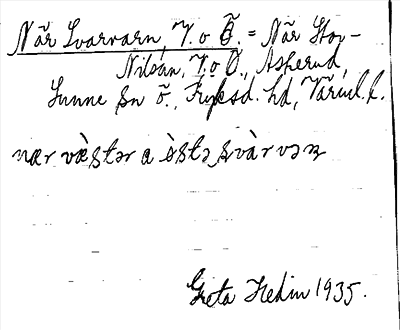 När Svarvarn, V. o Ö. = När Stor-
Nilsan, V. o Ö., Askerud,
Sunne sn ö., Fryksd. hd, Värml. l.
nær væ̀stər a ö̀stə svàrvəɳ
Greta Hedin 1935.